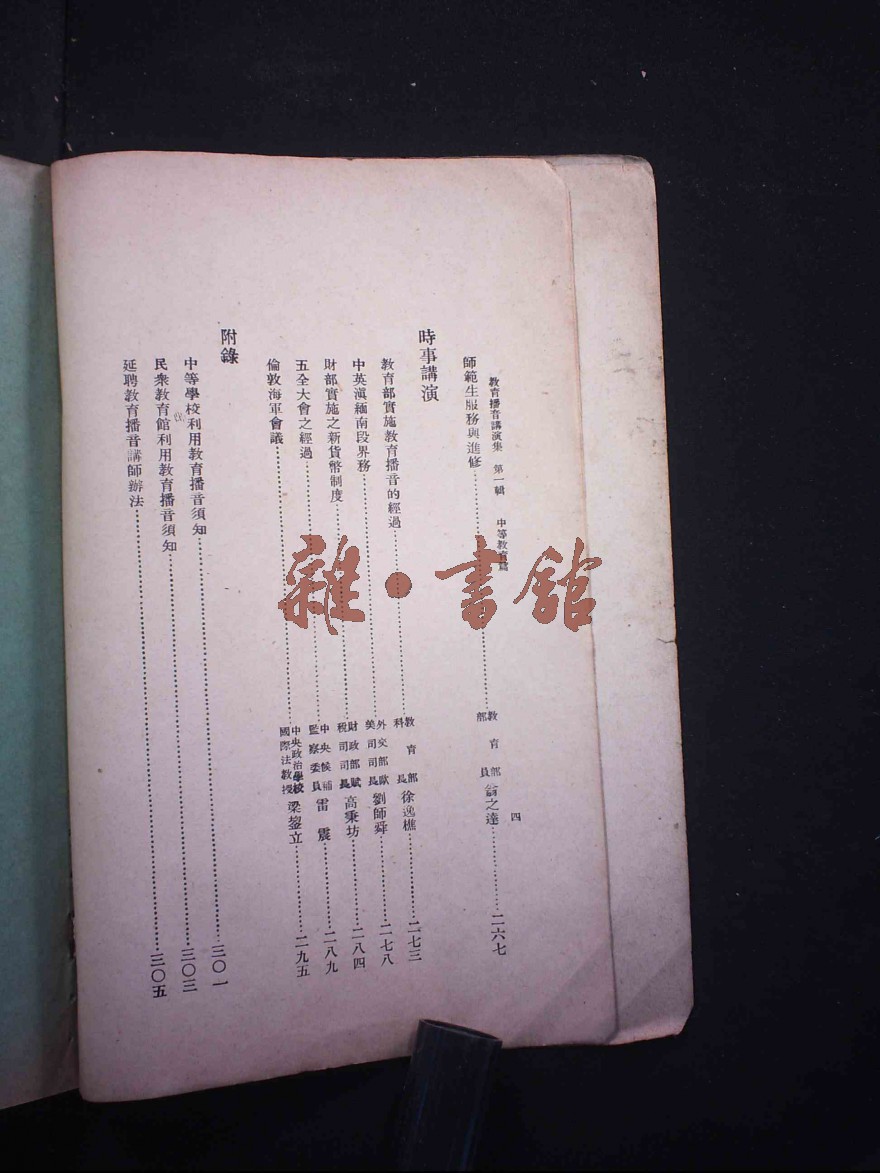 教育播音講演集　第一輯　中等教育篇　四
師範生服務與進修……教育部部員　翁之達……二六七
時事講演
教育部實施教育播音的經過……教育部科長　徐逸樵……二七三
中英滇緬南段界務……外交部歐美司司長　劉師舜……二七八
財部實施之新貨幣制度……財政部賦稅司司長　高秉坊……二八四
五全大會之經過……中央候補監察委員　雷震……二八九
倫敦海軍會議……中央政治學校國際法教授　梁鋆立……二九五
附錄
中等學校利用教育播音須知……三〇一
民衆教育館利用教育播音須知……三〇三
延聘教育播音講師辦法……三〇五
雜·書館